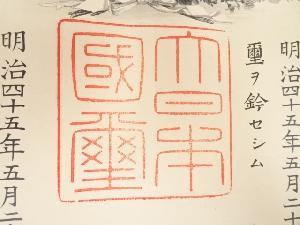 明治四十五年五月二十
璽ヲ鈐セシム
大日本
國璽
明治四十五年五月二